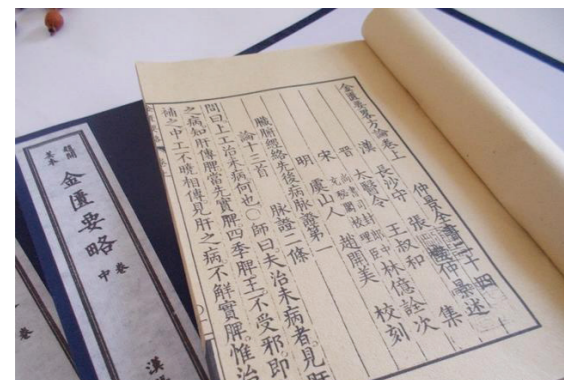 仲景全書二十四
金匱要略方論卷上
漢 張仲景述
晉 太醫令 王叔和 集
林億詮次
明 虞山人 趙開美 校刻
臟腑經絡先後病脉證第一
論十三首 脉證二條
問曰上工治未病何也〇師曰夫治未病者見肝
之病知肝傳脾當先實脾四季脾王不受邪即
補之中工不曉相傳見肝之病不解實脾惟治
金匱要略
中卷
卷
漢